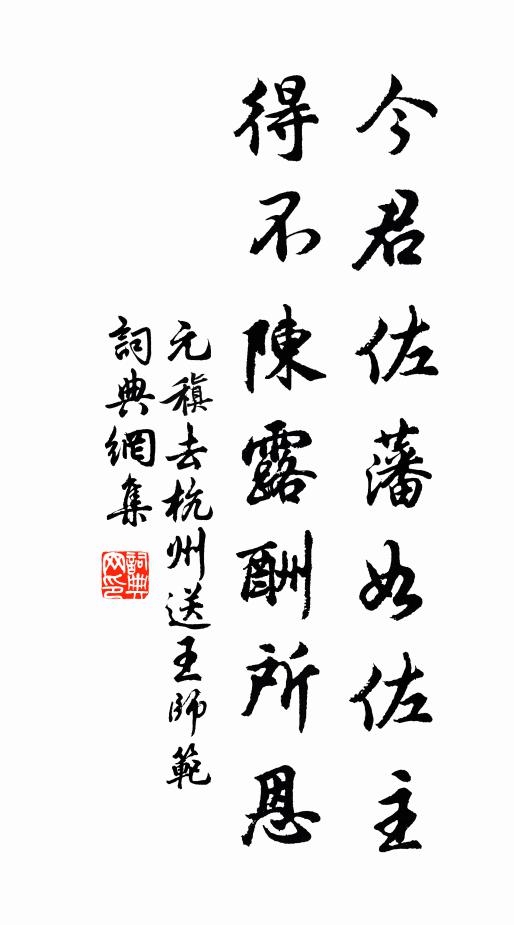 今君佐藩如佐主
得不陳露酬所恩
元稹去杭州送王師範
詞典網集
詞典網印